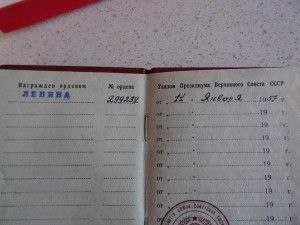 Награжден орденом
№ ордена
ЛЕНИНА
299239
Указом Президиума Верховного Совета СССР
от " 12 " Января 1957
от " " 19
от " " 19
от " " 19
от " " 19
от " " 19
от " " 19
от " " 19
от " " 19